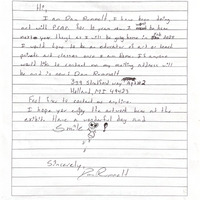 Hi,
I am Dan Runnell, I have been doing
art with PCAP for 10 years now. I to been
more years though as I will be going home in
I would hope to be an educator of art or teach
private art classes once I am home. If anyone
would like to contact me my mailing address will
be and is now: Dan Runnell
Shatford way Apt #2
Holland, MI 49423
Feel free to contact me anytime.
I hope you enjoy the artwork here at the
exhibit. Have a wonderful day and
Smile!
Sincerely,
Dan Runnell